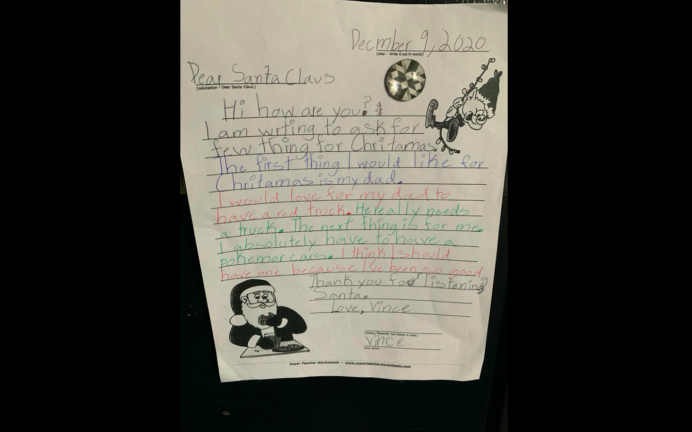 Decmber 9, 2020
Dear Santa Claus
Hi how are you?
I am writing to ask for
few thing for Chritamas.
The first thing I would like for
Chritamas is my dad.
I would love for my dad to
have a red truck. He really needs
a truck. The next thing is for me.
I absolutely have to have a
pokemor cars. I think I should
have one because I've been so good.
Thank you for listening
Santa.
Love, Vince
Vince
Super Teacher Worksheets - www.superteacherworksheets.com